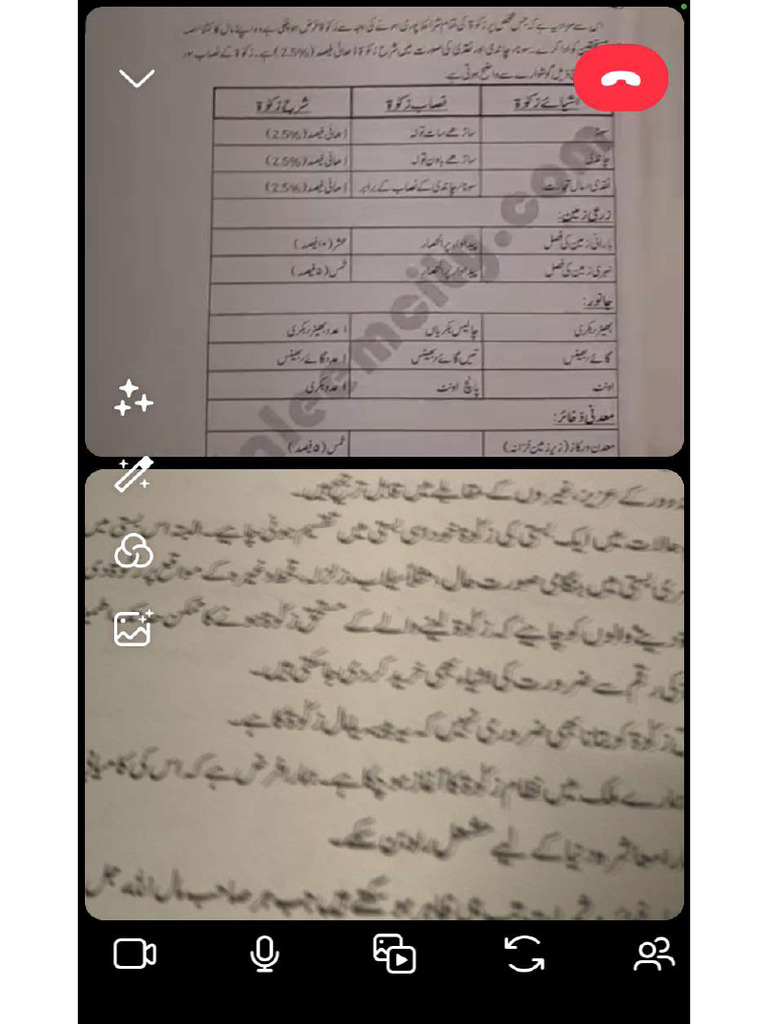 اس سے مراد یہ ہے کہ جس شخص پر زکوٰۃ کی تمام شرائط پوری ہونے کی وجہ سے زکوٰۃ فرض ہو چکی ہے وہ اپنے مال کا اتنا حصہ
مستحقین کو ادا کرے۔ سونا، چاندی اور نقدی کی صورت میں شرح زکوٰۃ ڈھائی فیصد (2.5%) ہے۔ زکوٰۃ کے نصاب اور
ذیل گوشوارے سے واضح ہوتی ہے:
اشیائے زکوٰۃ نصاب زکوٰۃ شرح زکوٰۃ
سونا ساڑھے سات تولہ ڈھائی فیصد (2.5%)
چاندی ساڑھے باون تولہ ڈھائی فیصد (2.5%)
نقدی/مال تجارت سونا/چاندی کے نصاب کے برابر ڈھائی فیصد (2.5%)
زرعی زمین:
بارانی زمین کی فصل پیداوار پر انحصار عشر (۱۰ فیصد)
نہری زمین کی فصل پیداوار پر انحصار خمس (۵ فیصد)
جانور:
بھیڑ/بکری چالیس بکریاں ۱ عدد بھیڑ/بکری
گائے/بھینس تیس گائے/بھینس ۱ عدد گائے/بھینس
اونٹ پانچ اونٹ ۱ عدد بکری
معدنی ذخائر:
معدن و رکاز (زیر زمین خزانہ) خمس (۵ فیصد)
دور کے عزیز، غیروں کے مقابلے میں قابل ترجیح ہیں۔
حالات میں ایک بستی کی زکوٰۃ خود اسی بستی میں تقسیم ہونی چاہیے۔ البتہ اس بستی میں
بستی میں ہنگامی صورت حال مثلاً سیلاب، زلزلہ، قحط وغیرہ کے مواقع پر زکوٰۃ دی
دینے والوں کو چاہیے کہ زکوٰۃ لینے والے کے مستحق زکوٰۃ ہونے کا ممکن حد
کی رقم سے ضرورت کی اشیاء بھی خرید کر دی جا سکتی ہیں۔
زکوٰۃ کو بتانا بھی ضروری نہیں کہ یہ پیسہ یا مال زکوٰۃ کا ہے۔
ہمارے ملک میں نظام زکوٰۃ کا آغاز ہو چکا ہے۔ ہمارا فرض ہے کہ اس کی کامیابی
معاشرہ دنیا کے لیے مشعل راہ بن سکے۔
ظاہر ہو سکتے ہیں جب ہر صاحب مال اللہ